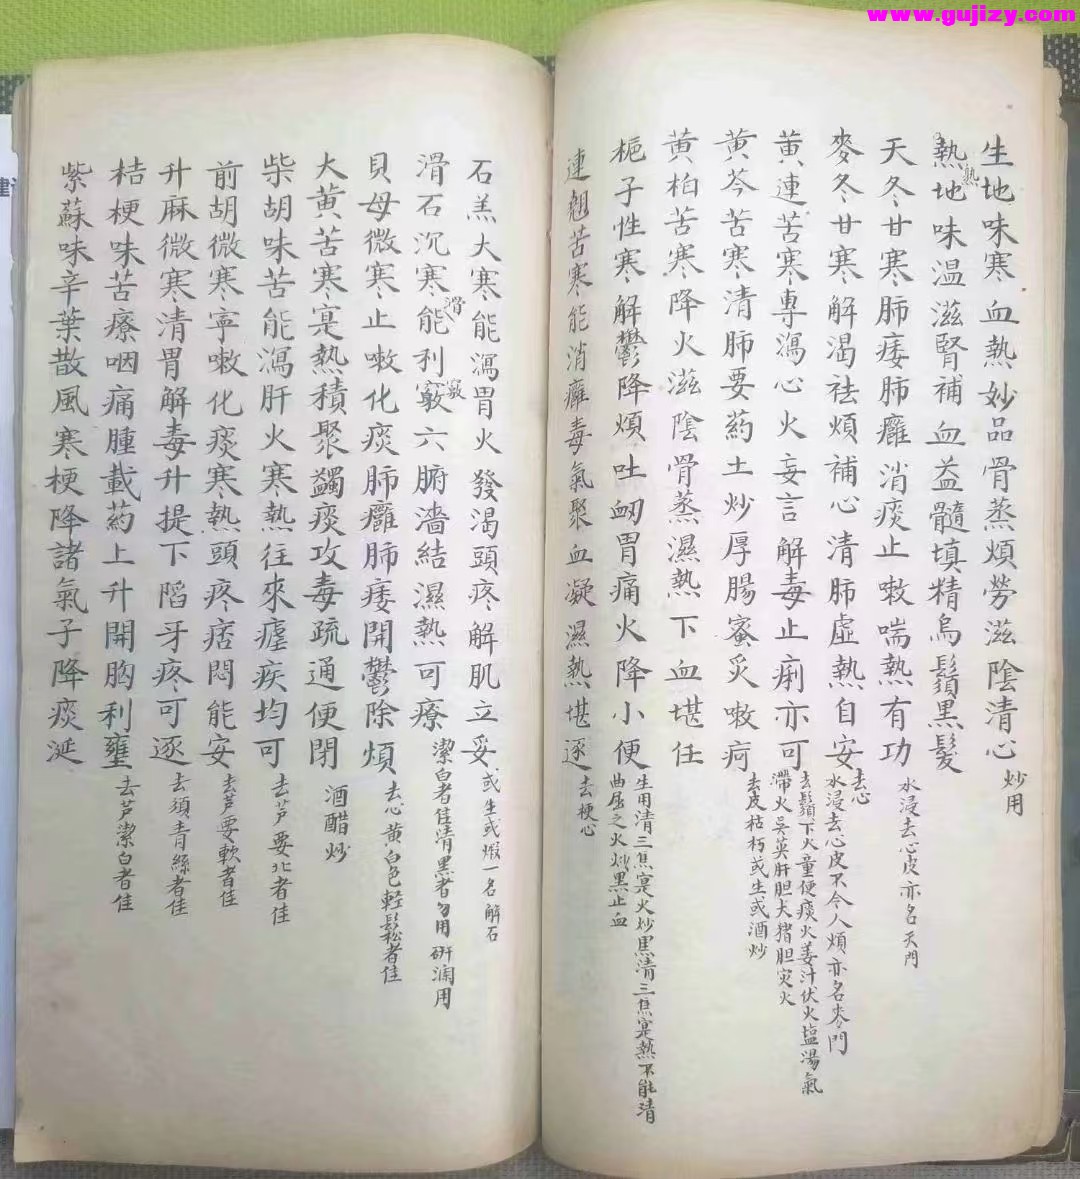 www.gujizy.com
生地味寒血熱妙品骨蒸煩勞滋陰清心 炒用
熟地味温滋腎補血益髓填精烏鬚黒髮
熟
天冬甘寒肺痿肺癰消痰止嗽喘熱有功 水浸去心皮亦名天門
麥冬甘寒解渴祛煩補心清肺虚熱自安 去心
水浸去心皮不令人煩亦名麦門
黄連苦寒專瀉心火妄言解毒止痢亦可 去鬚下火童便痰火姜汁伏火塩湯氣
滯火吴萸肝胆火猪胆实火
黄芩苦寒清肺要药土炒厚腸蜜炙嗽疴 去皮枯朽或生或酒炒
黄柏苦寒降火滋陰骨蒸濕熱下血堪任
栀子性寒解鬱降煩吐衄胃痛火降小便 生用清三焦寔火炒黒清三焦寔熱不能清
曲屈之火炒黒止血
連翹苦寒能消癰毒氣聚血凝濕熱堪逐 去梗心
石羔大寒能瀉胃火發渴頭疼解肌立妥 或生或煆一名解石
滑石沉寒能利竅六腑濇結濕熱可療 潔白者佳清黒者勿用研润用
滑
竅
貝母微寒止嗽化痰肺癰肺痿開鬱除煩 去心黄白色軽鬆者佳
大黄苦寒寔熱積聚蠲痰攻毒疏通便閉 酒醋炒
柴胡味苦能瀉肝火寒熱往來瘧疾均可 去芦要北者佳
前胡微寒寧嗽化痰寒熱頭疼痞悶能安 去芦要軟者佳
升麻微寒清胃解毒升提下陷牙疼可逐 去須青絲者佳
桔梗味苦療咽痛腫載药上升開胸利壅 去芦潔白者佳
紫蘇味辛葉散風寒梗降諸氣子降痰涎